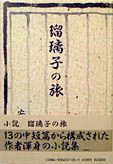 瑠璃子の旅
小説　瑠璃子の旅
13の中短篇から構成された
作者渾身の小説集